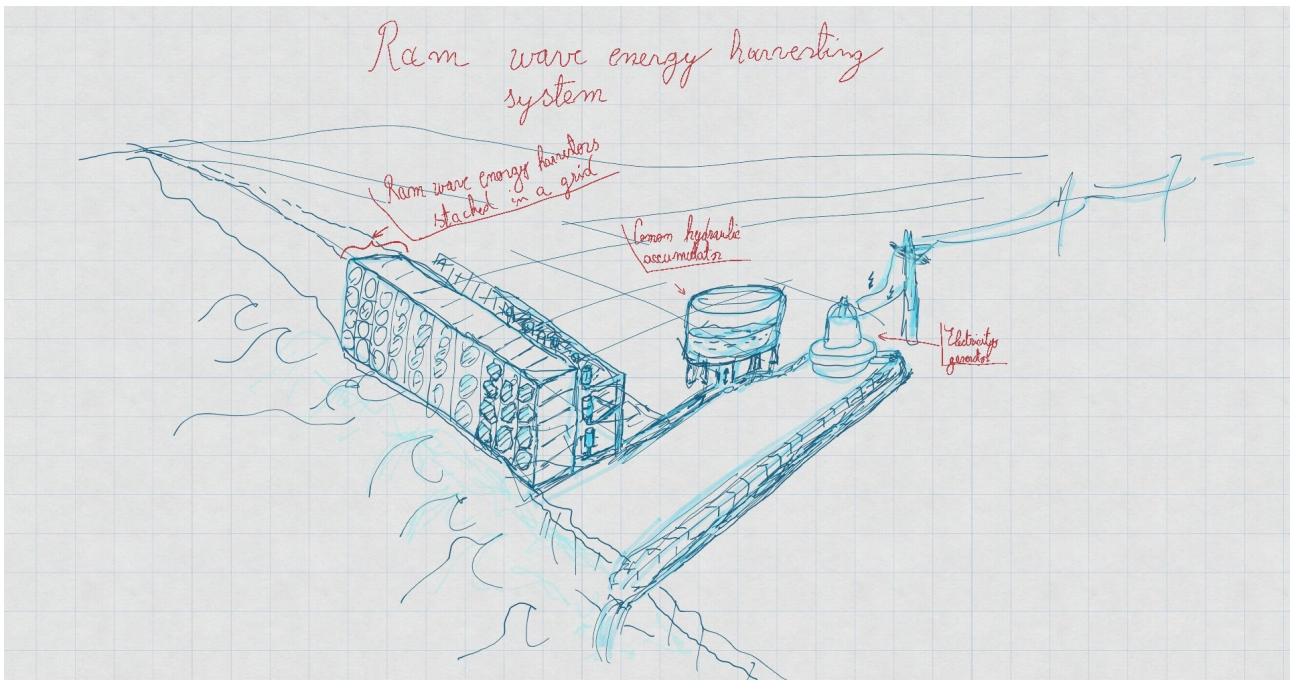 Ram wave energy harvesting
system
Ram wave energy harvestors
stacked in a grid
Comon hydraulic
accumullator
Electricity
generator